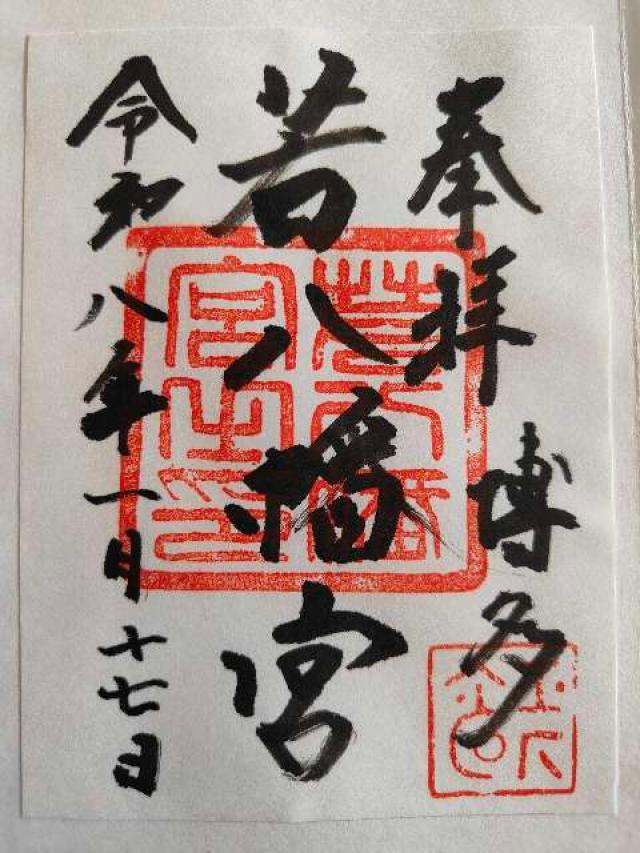 奉拝
博多
若八幡宮
令和八年一月十七日
若八幡
宮之印